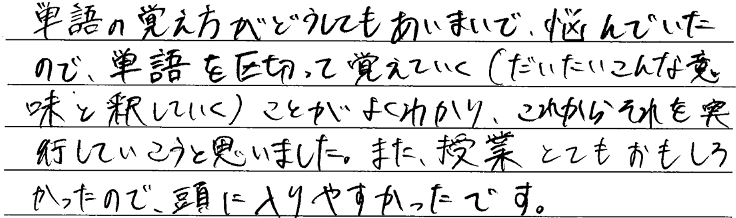 単語の覚え方がどうしてもあいまいで、悩んでいた
ので、単語を区切って覚えていく(だいたいこんな意
味と釈していく)ことがよくわかり、これからそれを実
行していこうと思いました。また、授業とてもおもしろ
かったので、頭に入りやすかったです。